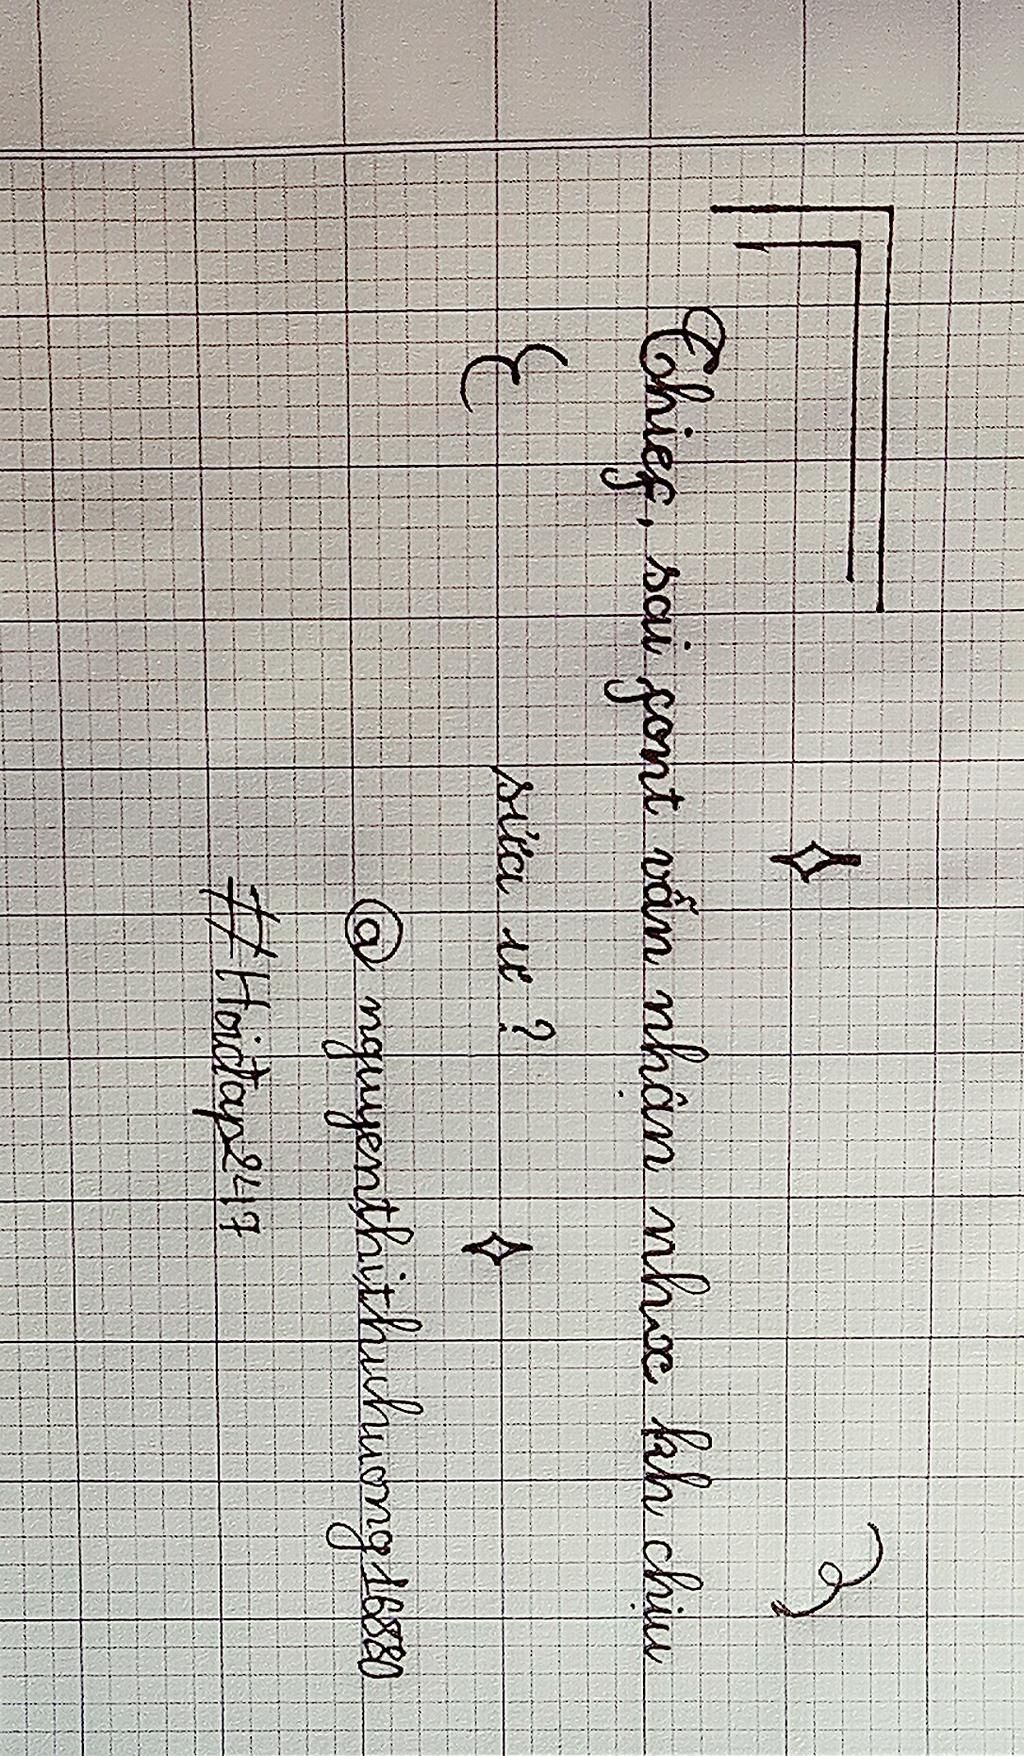 Chief, sai font vẫn nhận nhx kh chịu
sửa u ?
@ nguyenthithuhuong16880
#Hoidap247